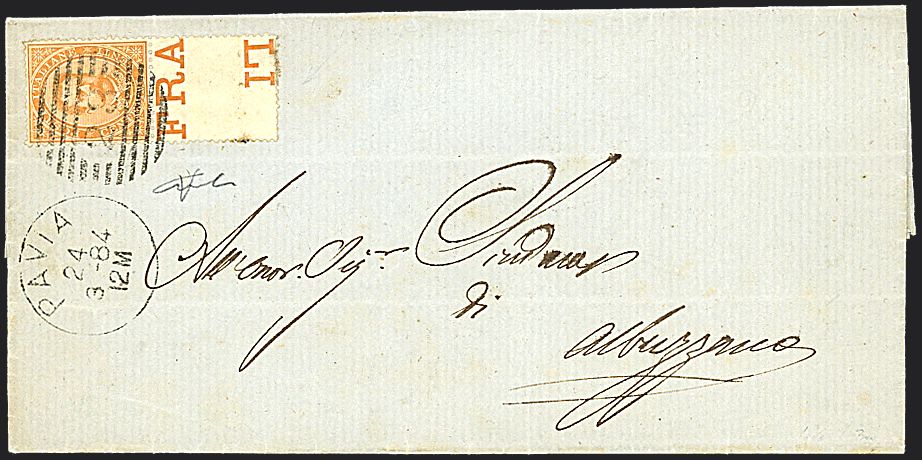 FRA LI
ITALIANE
PAVIA
24
3-84
12M
All'onor. Sig.r Sindaco
di
Albuzzano